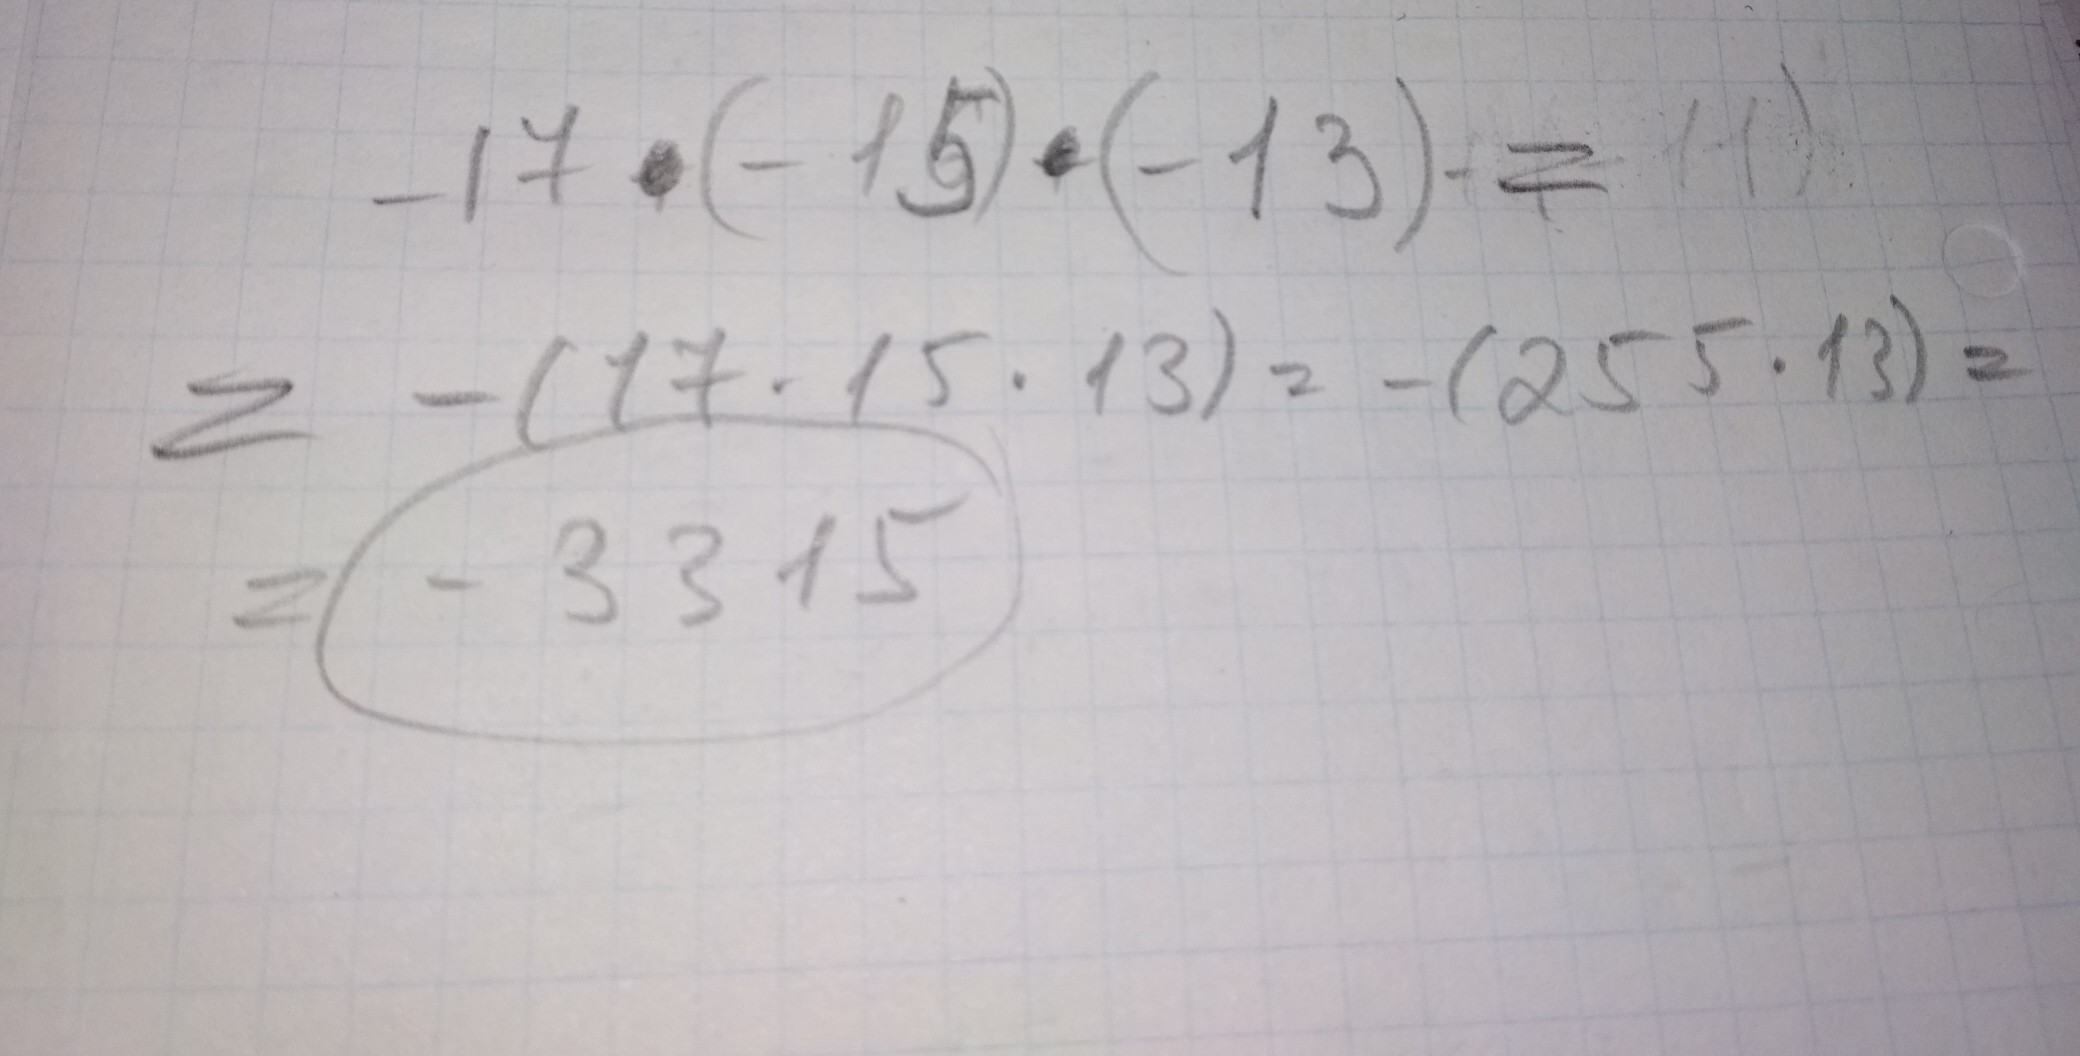 -17 • (-15) • (-13) =
= -(17 · 15 · 13) = -(255 · 13) =
= -3315